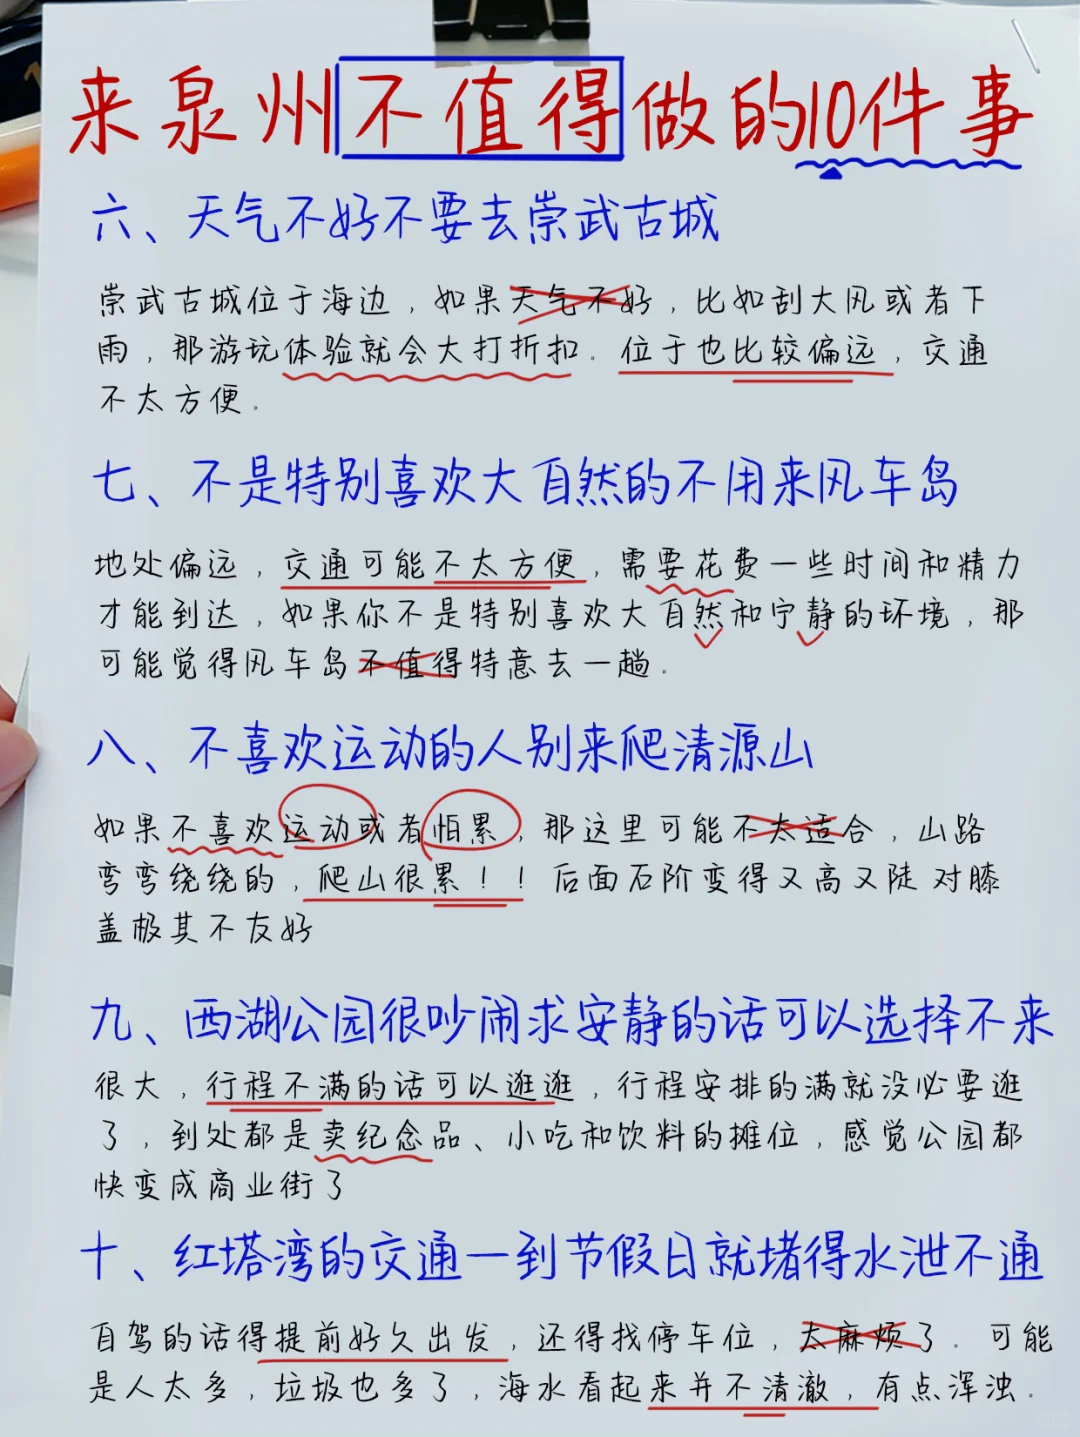 来泉州不值得做的10件事
六、天气不好不要去崇武古城
崇武古城位于海边，如果天气不好，比如刮大风或者下
雨，那游玩体验就会大打折扣．位于也比较偏远，交通
不太方便．
七、不是特别喜欢大自然的不用来风车岛
地处偏远，交通可能不太方便，需要花费一些时间和精力
才能到达，如果你不是特别喜欢大自然和宁静的环境，那
可能觉得风车岛不值得特意去一趟．
八、不喜欢运动的人别来爬清源山
如果不喜欢运动或者怕累，那这里可能不太适合，山路
弯弯绕绕的，爬山很累！！后面石阶变得又高又陡 对膝
盖极其不友好
九、西湖公园很吵闹求安静的话可以选择不来
很大，行程不满的话可以逛逛，行程安排的满就没必要逛
了，到处都是卖纪念品、小吃和饮料的摊位，感觉公园都
快变成商业街了
十、红塔湾的交通一到节假日就堵得水泄不通
自驾的话得提前好久出发，还得找停车位，太麻烦了．可能
是人太多，垃圾也多了，海水看起来并不清澈，有点浑浊．